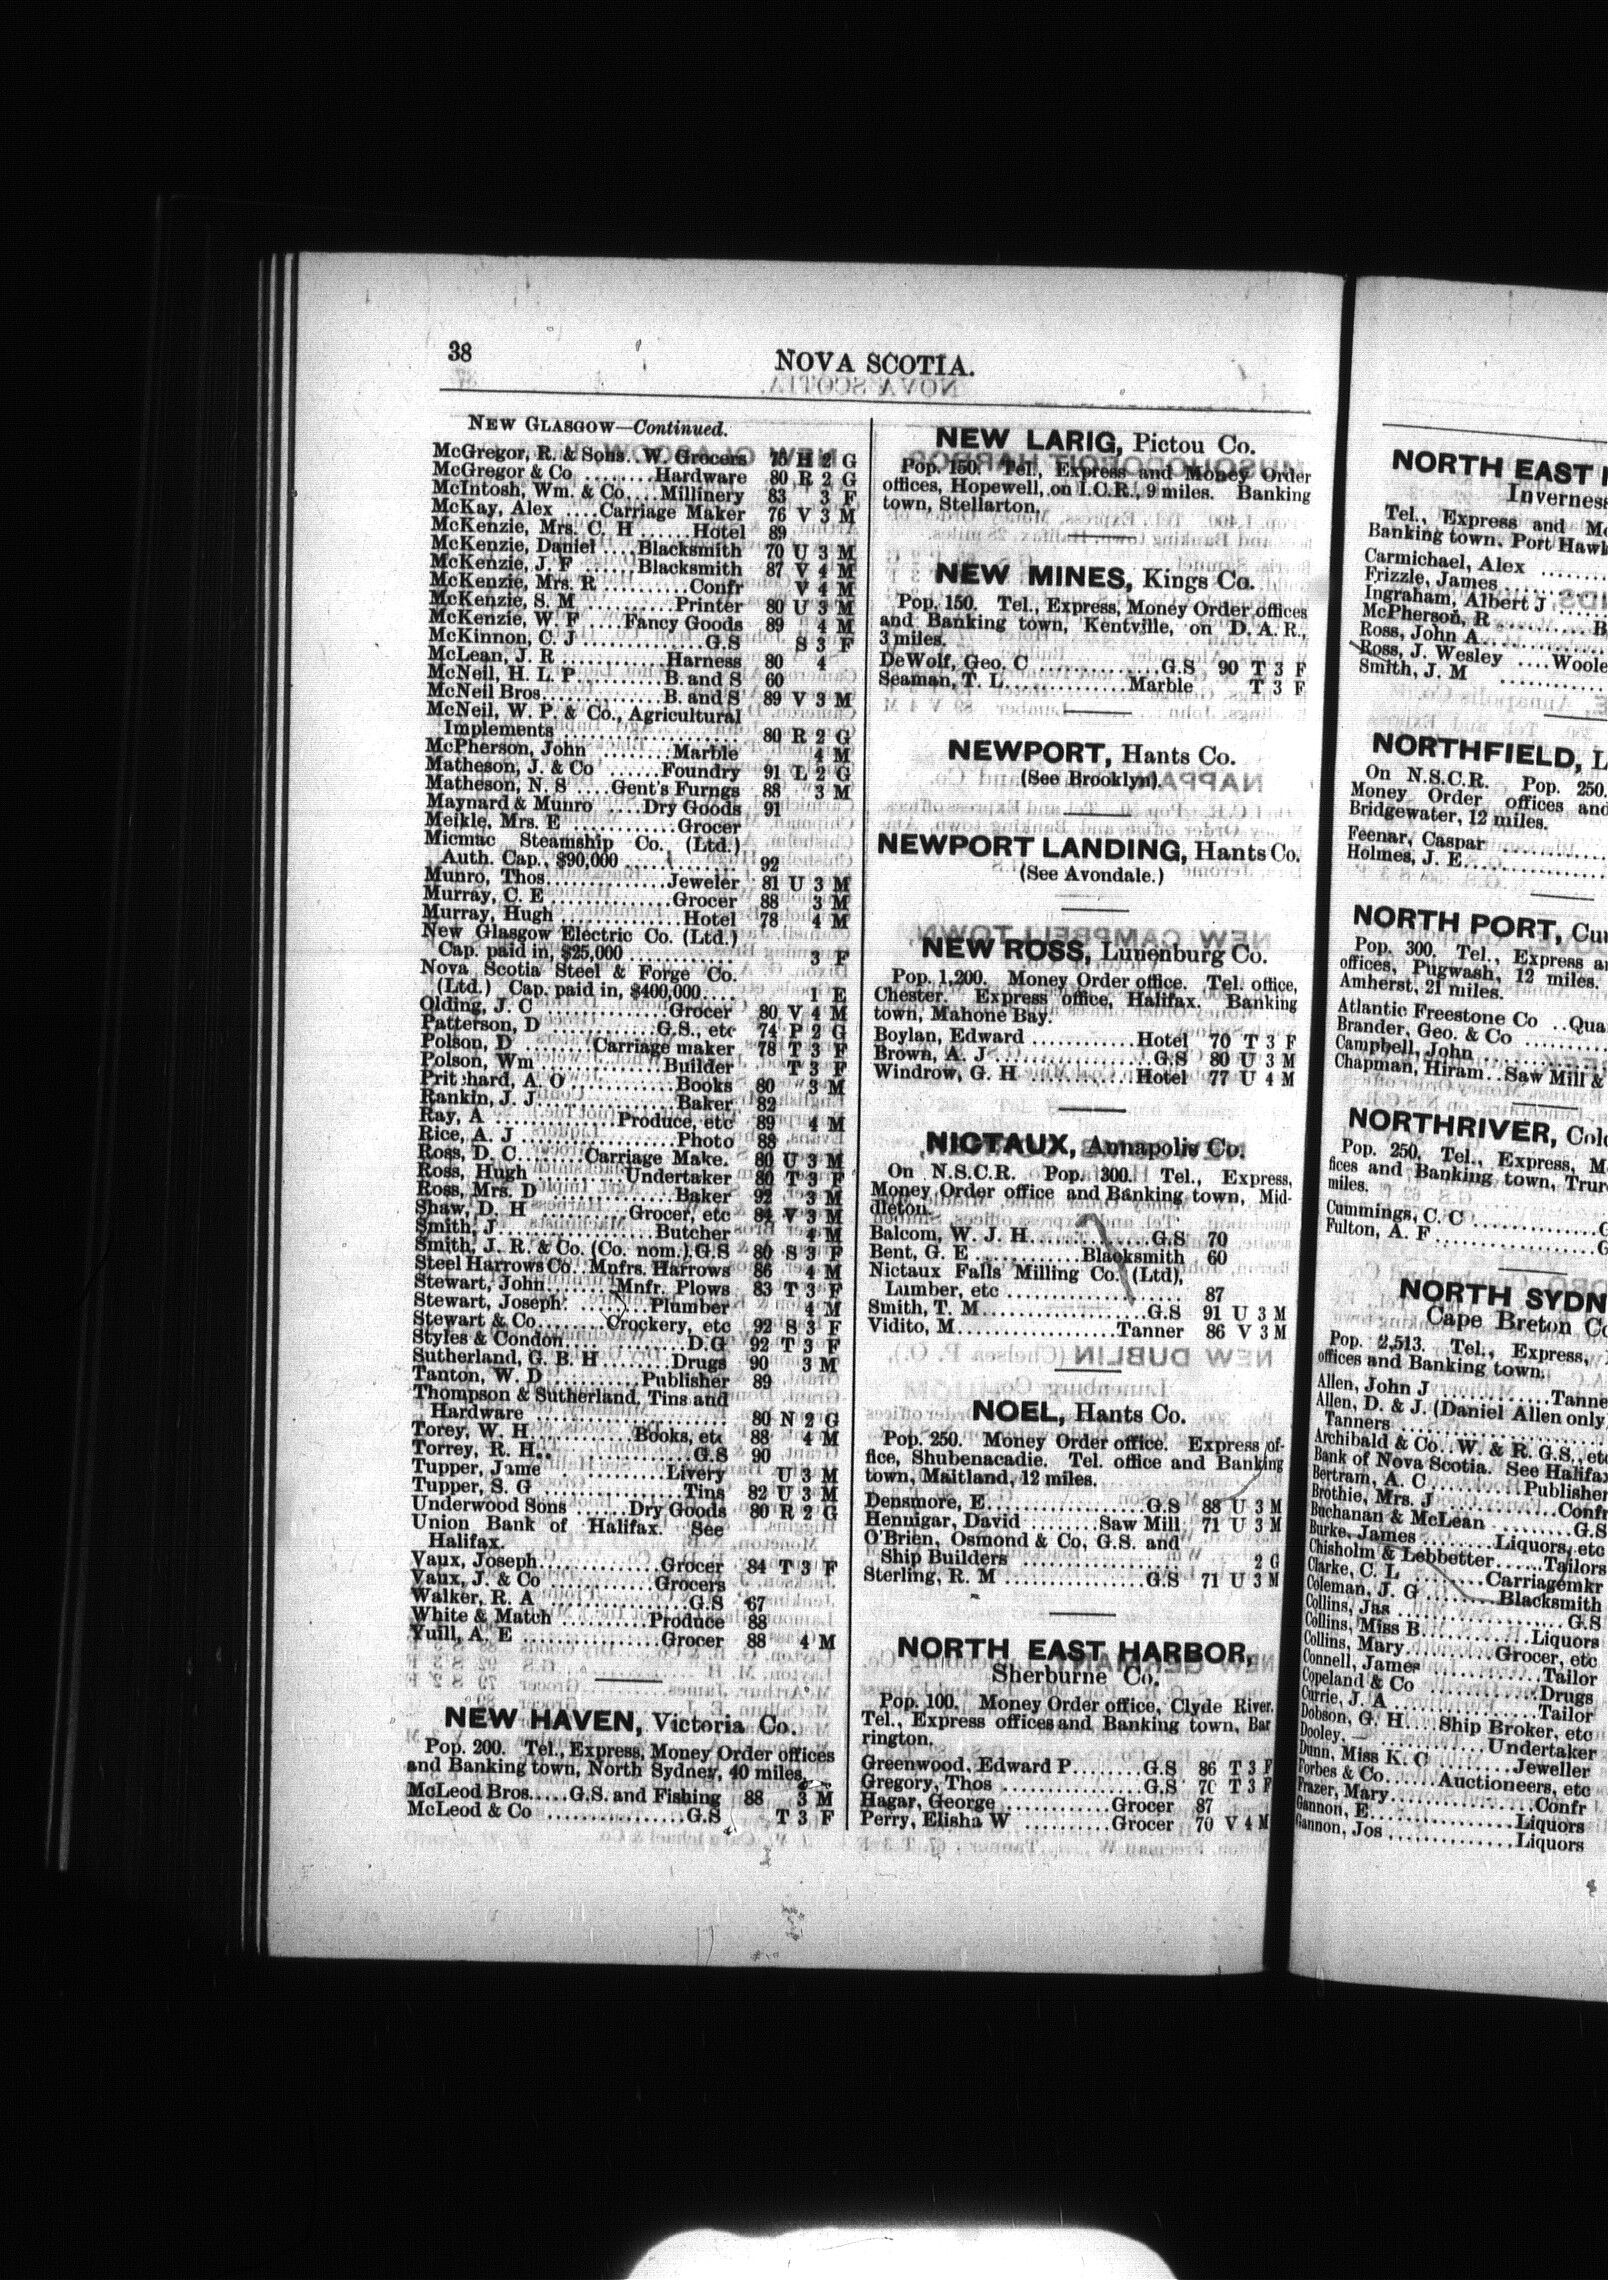 38
NOVA SCOTIA.
NEW GLASGOW—Continued.
McGregor, R. & Sons..W. Grocers 75 H 2 G
McGregor & Co ........Hardware 80 R 2 G
McIntosh, Wm. & Co....Millinery 83 3 F
McKay, Alex ....Carriage Maker 76 V 3 M
McKenzie, Mrs. C H ......Hotel 89
McKenzie, Daniel ....Blacksmith 70 U 3 M
McKenzie, J. F ......Blacksmith 87 V 4 M
McKenzie, Mrs. R ..........Confr V 4 M
McKenzie, S. M ..........Printer 80 U 3 M
McKenzie, W. F ....Fancy Goods 89 4 M
McKinnon, C. J ..............G.S S 3 F
McLean, J. R ............Harness 80 4
McNeil, H. L. P ..........B. and S 60
McNeil Bros..............B. and S 89 V 3 M
McNeil, W. P. & Co., Agricultural
Implements .................... 80 R 2 G
McPherson, John ..........Marble 4 M
Matheson, J. & Co ......Foundry 91 L 2 G
Matheson, N. S ....Gent's Furngs 88 3 M
Maynard & Munro ....Dry Goods 91
Meikle, Mrs. E ............Grocer
Micmac Steamship Co. (Ltd.)
Auth. Cap., $90,000 ............ 92
Munro, Thos..............Jeweler 81 U 3 M
Murray, C. E ..............Grocer 88 3 M
Murray, Hugh ..............Hotel 78 4 M
New Glasgow Electric Co. (Ltd.)
Cap. paid in, $25,000 ............ 3 F
Nova Scotia Steel & Forge Co.
(Ltd.) Cap. paid in, $400,000.... 1 E
Olding, J. C ................Grocer 80 V 4 M
Patterson, D ............G.S., etc 74 P 2 G
Polson, D ........Carriage maker 78 T 3 F
Polson, Wm ..............Builder T 3 F
Pritchard, A. O ............Books 80 3 M
Rankin, J. J................Baker 82
Ray, A ..............Produce, etc 89 4 M
Rice, A. J ..................Photo 88
Ross, D. C........Carriage Make. 80 U 3 M
Ross, Hugh ..........Undertaker 80 T 3 F
Ross, Mrs. D ..............Baker 92 3 M
Shaw, D. H ..........Grocer, etc 84 V 3 M
Smith, J ..................Butcher 4 M
Smith, J. R. & Co. (Co. nom.).G.S 80 S 3 F
Steel Harrows Co..Mnfrs. Harrows 86 4 M
Stewart, John........Mnfr. Plows 83 T 3 F
Stewart, Joseph ........Plumber 4 M
Stewart & Co........Crockery, etc 92 S 3 F
Styles & Condon ............D.G 92 T 3 F
Sutherland, G. B. H ........Drugs 90 3 M
Tanton, W. D ..........Publisher 89
Thompson & Sutherland, Tins and
Hardware ...................... 80 N 2 G
Torey, W. H............Books, etc 88 4 M
Torrey, R. H..................G.S 90
Tupper, Jame ..............Livery U 3 M
Tupper, S. G ................Tins 82 U 3 M
Underwood Sons ......Dry Goods 80 R 2 G
Union Bank of Halifax. See
Halifax.
Vaux, Joseph..............Grocer 84 T 3 F
Vaux, J. & Co ............Grocers
Walker, R. A ................G.S 67
White & Match ..........Produce 88
Yuill, A. E ................Grocer 88 4 M
NEW HAVEN, Victoria Co.
Pop. 200. Tel., Express, Money Order offices
and Banking town, North Sydney, 40 miles.
McLeod Bros.....G.S. and Fishing 88 3 M
McLeod & Co ................G.S T 3 F
NEW LARIG, Pictou Co.
Pop. 150. Tel., Express and Money Order
offices, Hopewell, on I.C.R., 9 miles. Banking
town, Stellarton.
NEW MINES, Kings Co.
Pop. 150. Tel., Express, Money Order offices
and Banking town, Kentville, on D. A. R.,
3 miles.
DeWolf, Geo. C ..............G.S 90 T 3 F
Seaman, T. L..............Marble T 3 F
NEWPORT, Hants Co.
(See Brooklyn).
NEWPORT LANDING, Hants Co.
(See Avondale.)
NEW ROSS, Lunenburg Co.
Pop. 1,200. Money Order office. Tel. office,
Chester. Express office, Halifax. Banking
town, Mahone Bay.
Boylan, Edward ............Hotel 70 T 3 F
Brown, A. J..................G.S 80 U 3 M
Windrow, G. H ............Hotel 77 U 4 M
NICTAUX, Annapolis Co.
On N.S.C.R. Pop. 300. Tel., Express,
Money Order office and Banking town, Mid-
dleton.
Balcom, W. J. H..............G.S 70
Bent, G. E ............Blacksmith 60
Nictaux Falls Milling Co. (Ltd),
Lumber, etc .................... 87
Smith, T. M..................G.S 91 U 3 M
Vidito, M..................Tanner 86 V 3 M
NOEL, Hants Co.
Pop. 250. Money Order office. Express of-
fice, Shubenacadie. Tel. office and Banking
town, Maitland, 12 miles.
Densmore, E..................G.S 88 U 3 M
Hennigar, David ........Saw Mill 71 U 3 M
O'Brien, Osmond & Co, G.S. and
Ship Builders .................. 2 G
Sterling, R. M ................G.S 71 U 3 M
NORTH EAST HARBOR,
Sherburne Co.
Pop. 100. Money Order office, Clyde River.
Tel., Express offices and Banking town, Bar
rington.
Greenwood, Edward P........G.S 86 T 3 F
Gregory, Thos ................G.S 70 T 3 F
Hagar, George ............Grocer 87
Perry, Elisha W ..........Grocer 70 V 4 M
NORTH EAST
Inverness
Tel., Express and
Banking town, Port Hawk
Carmichael, Alex ........
Frizzle, James ..........
Ingraham, Albert J ......
McPherson, R ..........B
Ross, John A............
Ross, J. Wesley ....Woole
Smith, J. M ............
NORTHFIELD, L
On N.S.C.R. Pop. 250.
Money Order offices and
Bridgewater, 12 miles.
Feenar, Caspar ..........
Holmes, J. E............
NORTH PORT, Cum
Pop. 300. Tel., Express a
offices, Pugwash, 12 miles.
Amherst, 21 miles.
Atlantic Freestone Co ..Qua
Brander, Geo. & Co ......
Campbell, John ..........
Chapman, Hiram..Saw Mill &
NORTHRIVER, Colc
Pop. 250. Tel., Express, M
fices and Banking town, Trur
miles.
Cummings, C. C ............G
Fulton, A. F................G
NORTH SYDN
Cape Breton Co
Pop. 2,513. Tel., Express,
offices and Banking town.
Allen, John J............Tanne
Allen, D. & J. (Daniel Allen only)
Tanners ................
Archibald & Co..W. & R. G.S., etc
Bank of Nova Scotia. See Halifax
Bertram, A. C..........Publisher
Brothie, Mrs. J ............Confr
Buchanan & McLean ........G.S
Burke, James ........Liquors, etc
Chisholm & Lebbetter......Tailors
Clarke, C. L ........Carriagemkr
Coleman, J. G ........Blacksmith
Collins, Jas ................G.S
Collins, Miss B............Liquors
Collins, Mary..........Grocer, etc
Connell, James ............Tailor
Copeland & Co ............Drugs
Currie, J. A ..............Tailor
Dobson, G. H....Ship Broker, etc
Dooley, — ............Undertaker
Dunn, Miss K. C ........Jeweller
Forbes & Co......Auctioneers, etc
Frazer, Mary..............Confr
Gannon, E................Liquors
Gannon, Jos ............Liquors